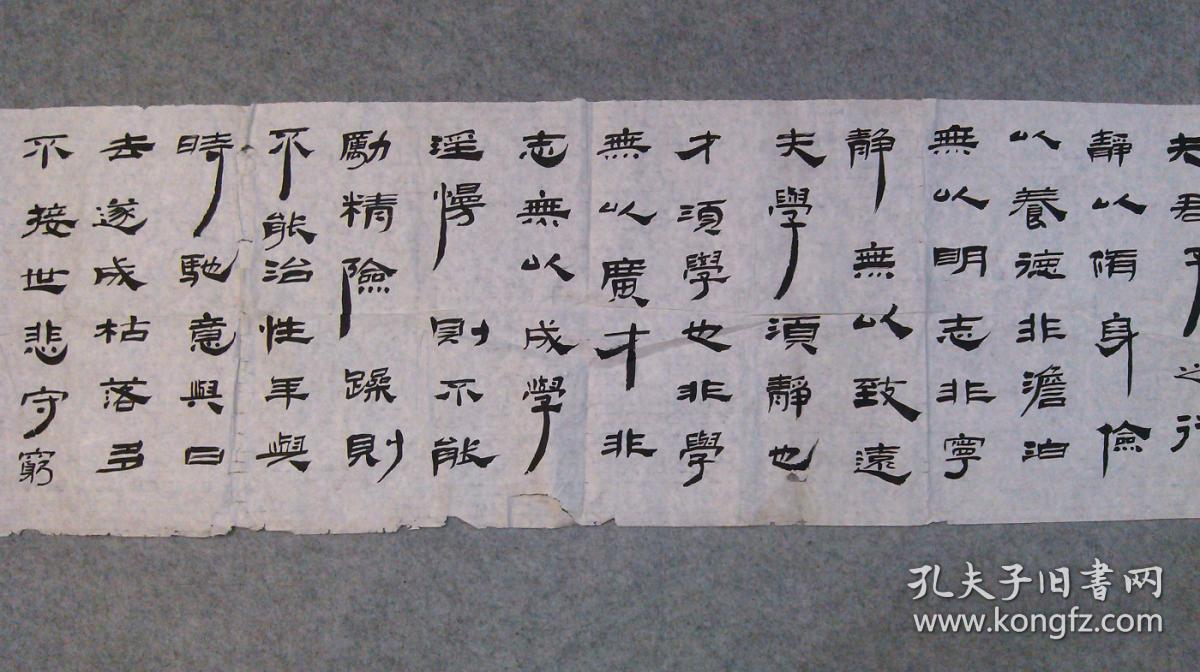 夫君子之行
静以脩身儉
以養德非澹泊
無以明志非寧
静無以致遠
夫學須静也
才須學也非學
無以廣才非
志無以成學
淫慢則不能
勵精險躁則
不能治性年與
時馳意與日
去遂成枯落多
不接世悲守窮
孔夫子旧書网
www.kongfz.com